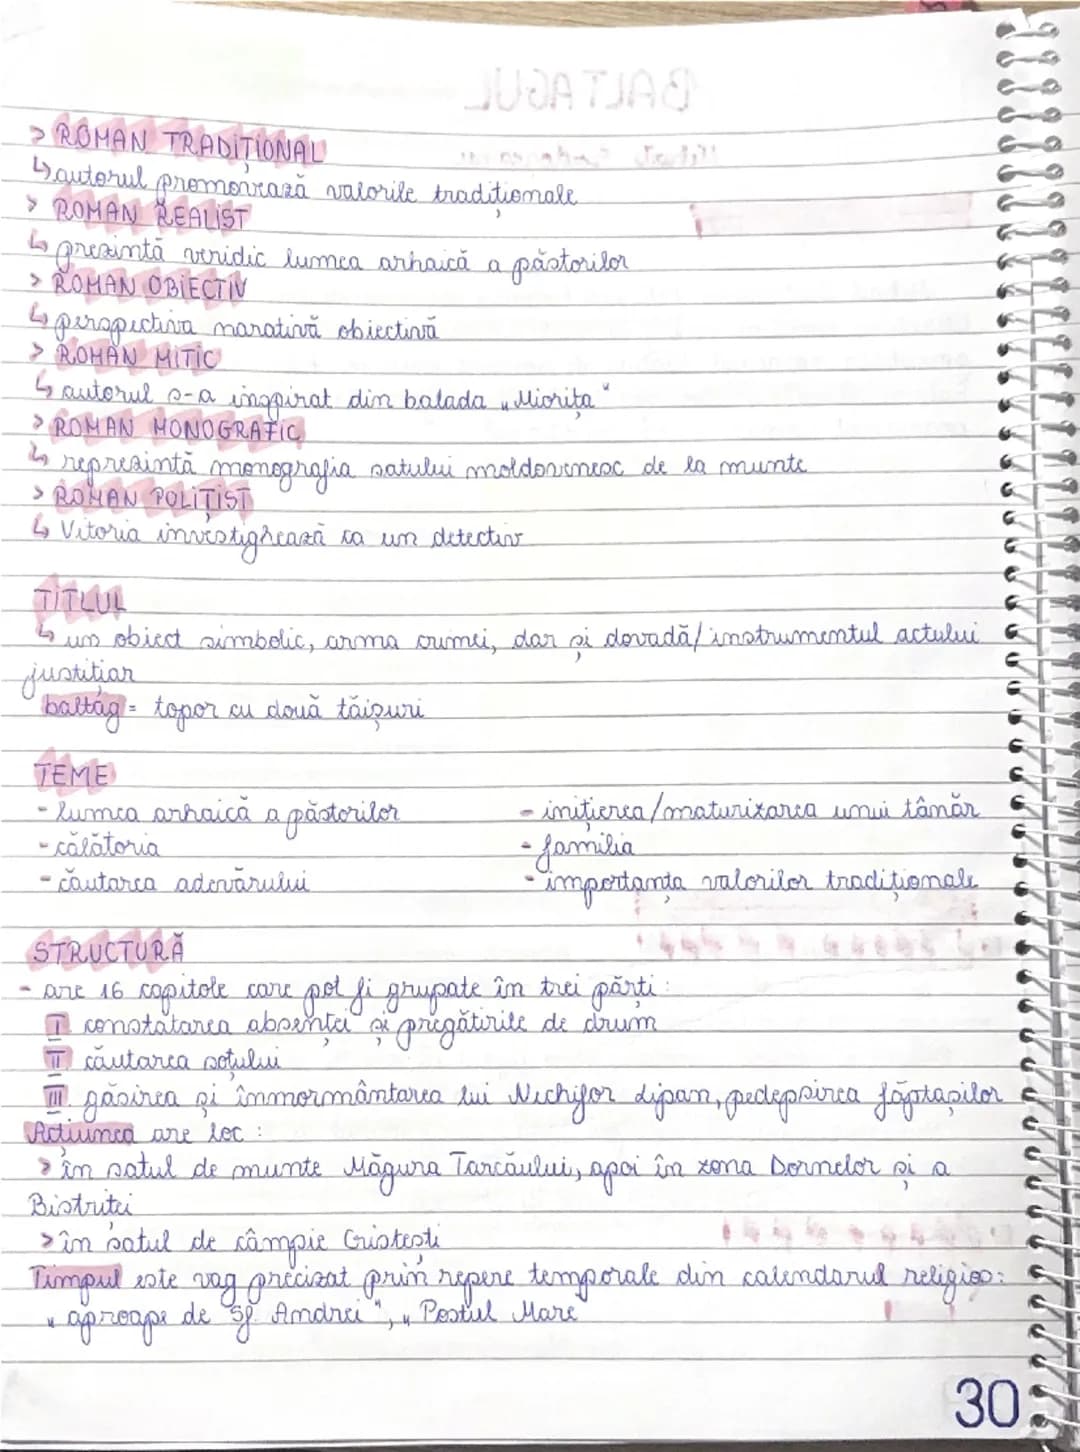 > ROMAN TRADIȚIONAL
↳ autorul promovează valorile tradiționale
> ROMAN REALIST
↳ prezintă veridic lumea arhaică a păstorilor
> ROMAN OBIECTIV
↳ perspectiva narativă obiectivă
> ROMAN MITIC
↳ autorul s-a inspirat din balada „Miorița"
> ROMAN MONOGRAFIC
↳ reprezintă monografia satului moldovenesc de la munte
> ROMAN POLIȚIST
↳ Vitoria investighează ca un detectiv
TITLUL
↳ un obiect simbolic, arma crimei, dar și dovadă/instrumentul actului
justițiar
baltág = topor cu două tăișuri
TEME
- lumea arhaică a păstorilor - inițierea/maturizarea unui tânăr
- călătoria - familia
- căutarea adevărului - importanța valorilor tradiționale
STRUCTURĂ
- are 16 capitole care pot fi grupate în trei părți:
I constatarea absenței și pregătirile de drum
II căutarea soțului
III. găsirea și înmormântarea lui Nechifor Lipan, pedepsirea făptașilor
Acțiunea are loc :
> în satul de munte Măgura Tarcăului, apoi în zona Dornelor și a
Bistriței
> în satul de câmpie Cristești
Timpul este vag precizat prin repere temporale din calendarul religios:
„aproape de Sf. Andrei", „Postul Mare"
30
BALTAGUL